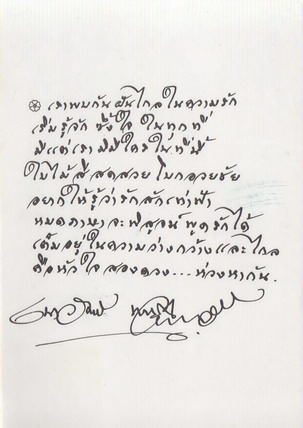 เราพบกันฝันไกลในความรัก
เริ่มรู้จัก ซึ้งใจ ในทุกที่
มีแต่เรา มิมีใครในที่นี้
ใบไม้สีสดสวย โบกอวยชัย
อยากให้รู้ว่ารักสักเท่าฟ้า
หมดภาษาจะพิสูจน์พูดรักได้
เต็มอยู่ในความว่างกว้างและไกล
คือหัวใจสองดวง...ห่วงหากัน.